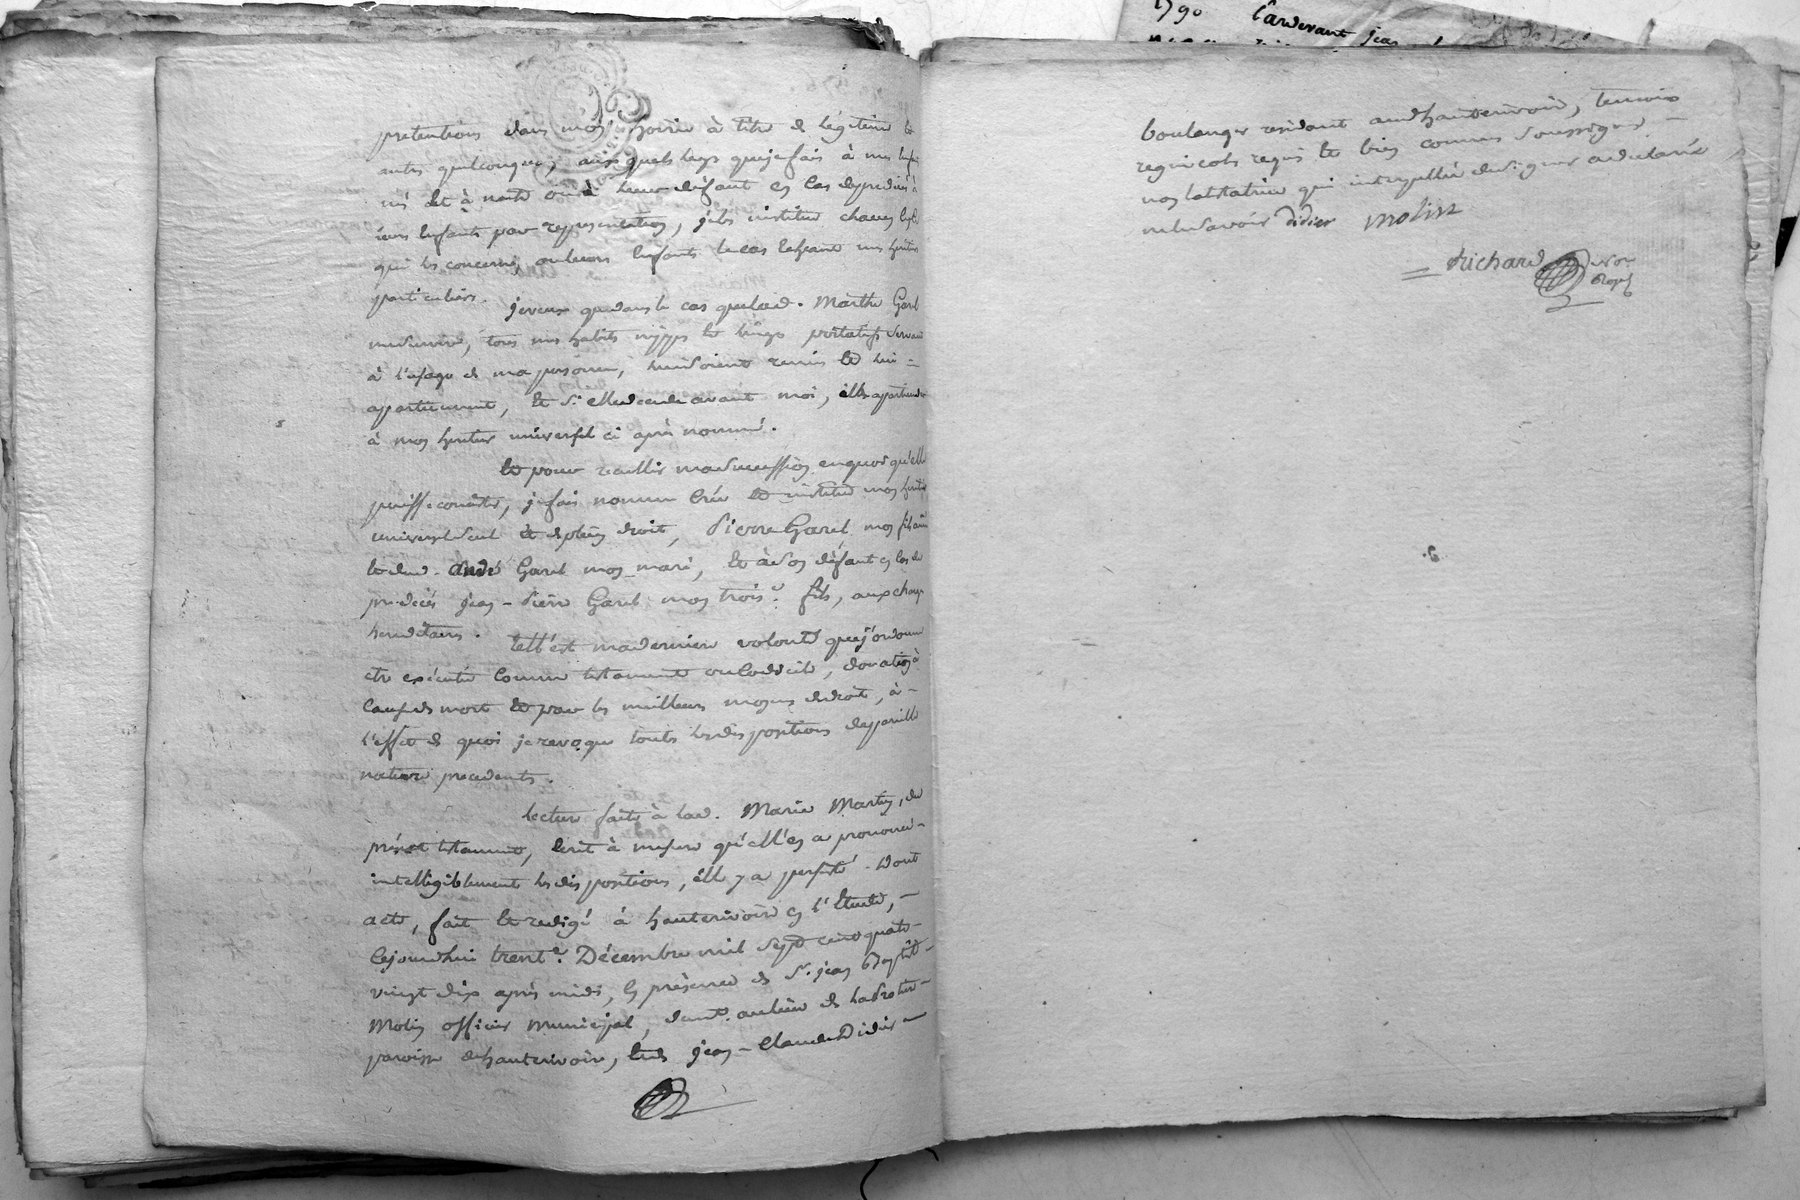 1790 Cardevant jean
pretentions dans mon hoirie à titre de légitime et
autres quelconques, auxquels legs que je fais à mes enfans
nés et à naitre ou à leur défaut en cas de predécès à
leurs enfants par representation, j'ets institue chacun
qui les concerne, ou leurs enfants le cas echeant mes heritiers
particuliers. je veux que dans le cas que lad. Marthe Garel
me survive, tous mes habits nippes et linges portatifs servant
à l'usage de ma personne, lui soient remis et lui =
appartiennent, et si elle decede avant moi, ils appartiendr
à mon heritier universel ci après nommé.
et pour receuillir ma succession en quoi qu'elle
puisse consister, je fais nomme crée et institue mon heritier
universel seul et de plein droit, Pierre Garel mon fils ainé
et dud. André Garel mon mari, et à son défaut en cas de
predecès jean-Pierre Garel mon trois.e fils, aux charges
hereditaires. telle est ma derniere volonté que j'ordonne
etre exécutée comme testament ou codicile, donation à
cause de mort et par les meilleurs moyens de droit, à -
l'effet de quoi je revoque toutes les dispositions de pareille
nature precedentes.
lecture faite à lad. Marie Martin, du
présent testament, ecrit à mesure qu'elle en a prononcé -
intelligiblement les dispositions, elle y a persisté. Dont
acte, fait et redigé à hauterivoire en l'Etude, -
cejourdhui trent.e Décembre mil sept cent quatre-
vingt dix après midi, en présence de S.r jean Baptiste -
Molin officier municipal, demt. au lieu de
paroisse de hauterivoire, et de jean - Claude Didier -
boulanger residant aud hauterivoire, temoins
regnicoles requis et bien connus soussignés, -
non la testatrice qui interpellée de signer a declaré
ne le savoir didier molin
= Richard Not.
Royal